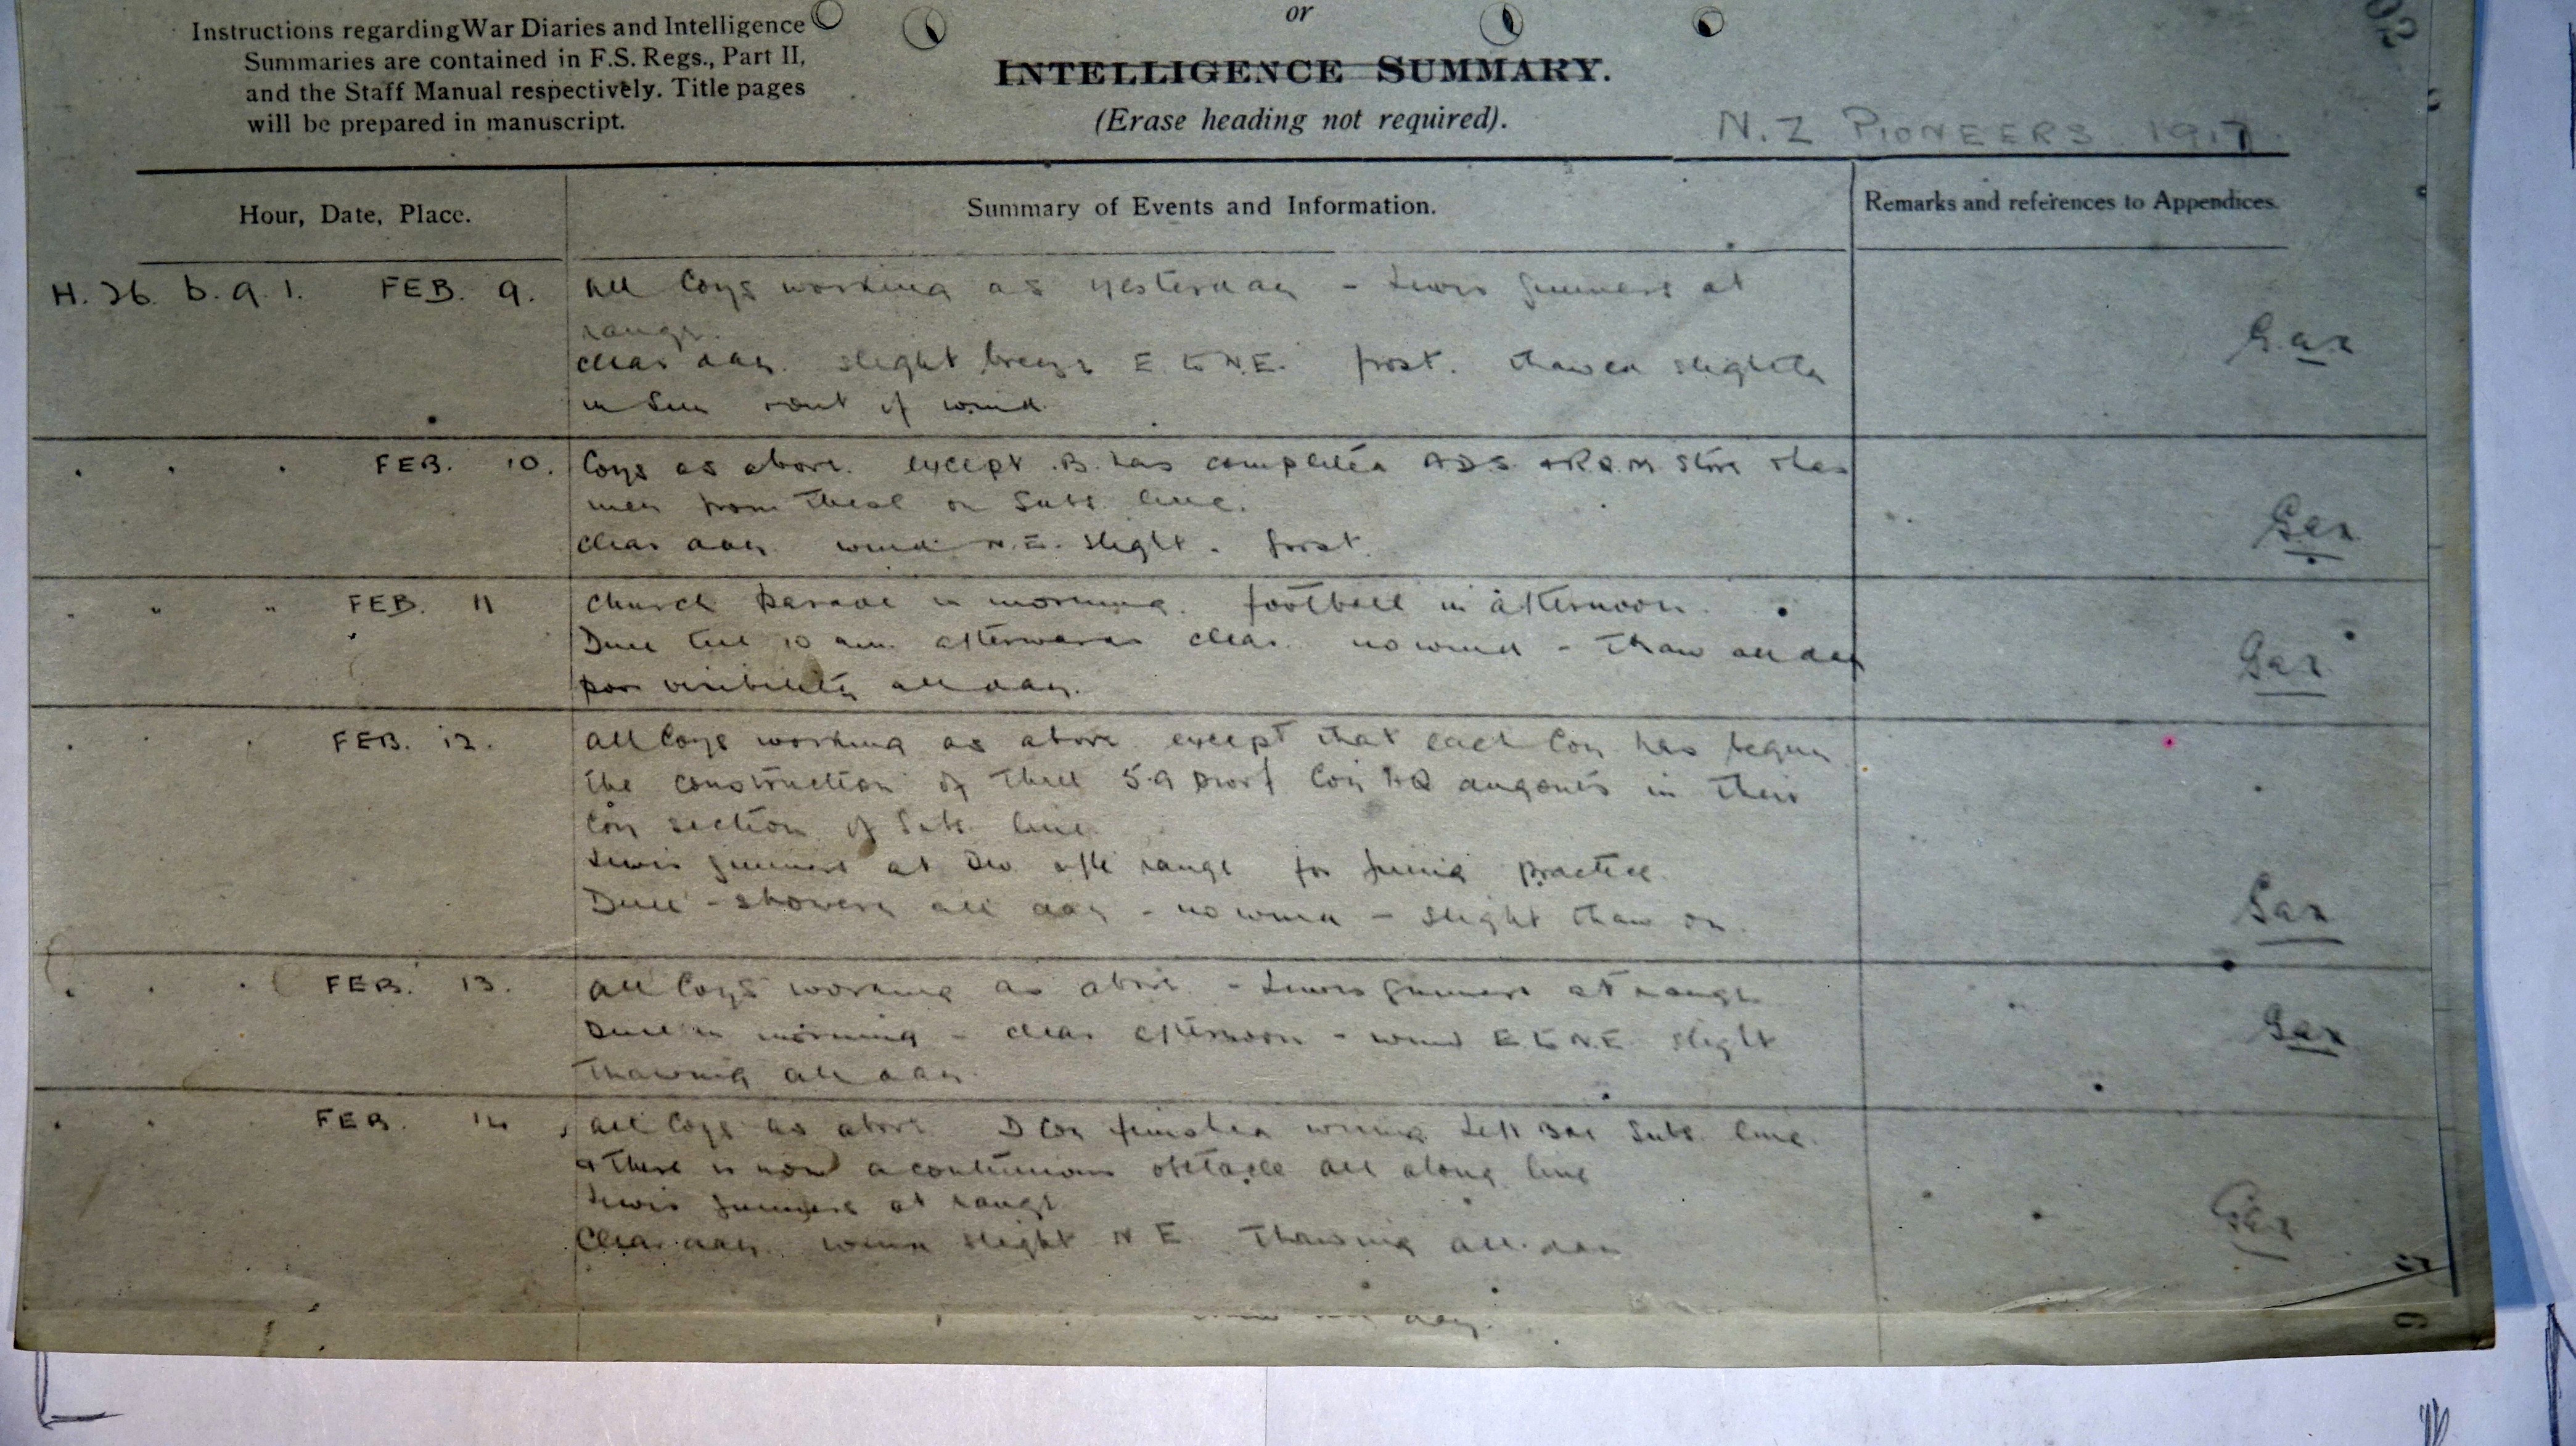 Instructions regarding War Diaries and Intelligence
Summaries are contained in F.S. Regs., Part II,
and the Staff Manual respectively. Title pages
will be prepared in manuscript.
or
INTELLIGENCE SUMMARY.
(Erase heading not required).
N. Z PIONEERS. 1917
Hour, Date, Place.
Summary of Events and Information.
Remarks and references to Appendices.
H. 26. b. 9. 1. FEB. 9.
All Coys working as yesterday - Lewis gunners at
range.
clear day. slight breeze E. to N.E. frost. thawed slightly
in sun & out of wind
" " " FEB. 10.
Coys as above. except B. has completed A.D.S. & store & has
men from these on Subs. line.
clear day. wind N.E. slight. frost.
" " " FEB. 11
Church Parade in morning. football in afternoon.
Dull till 10 am. afterwards clear. no wind - Thaw all day
poor visibility all day.
" " " FEB. 12.
All Coys working as above except that each Coy has begun
the construction of three 5.9 proof Coy HQ dugouts in their
Coy section of Subs. line.
Lewis gunners at Div rifle range for firing practice.
Dull - showery all day - no wind - slight thaw on.
" " " FEB. 13.
All Coys working as above. - Lewis gunners at range
Dull in morning - clear afternoon - wind E. to N.E. slight
Thawing all day.
" " " FEB. 14
All Coys as above D Coy finished wiring Left Subs. line.
& there is now a continuous obstacle all along line
Lewis gunners at range
Clear day. wind slight N E. Thawing all day
day.